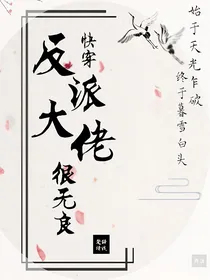 快穿
反派大佬
很无良
始于天光乍破
终于暮雪白头